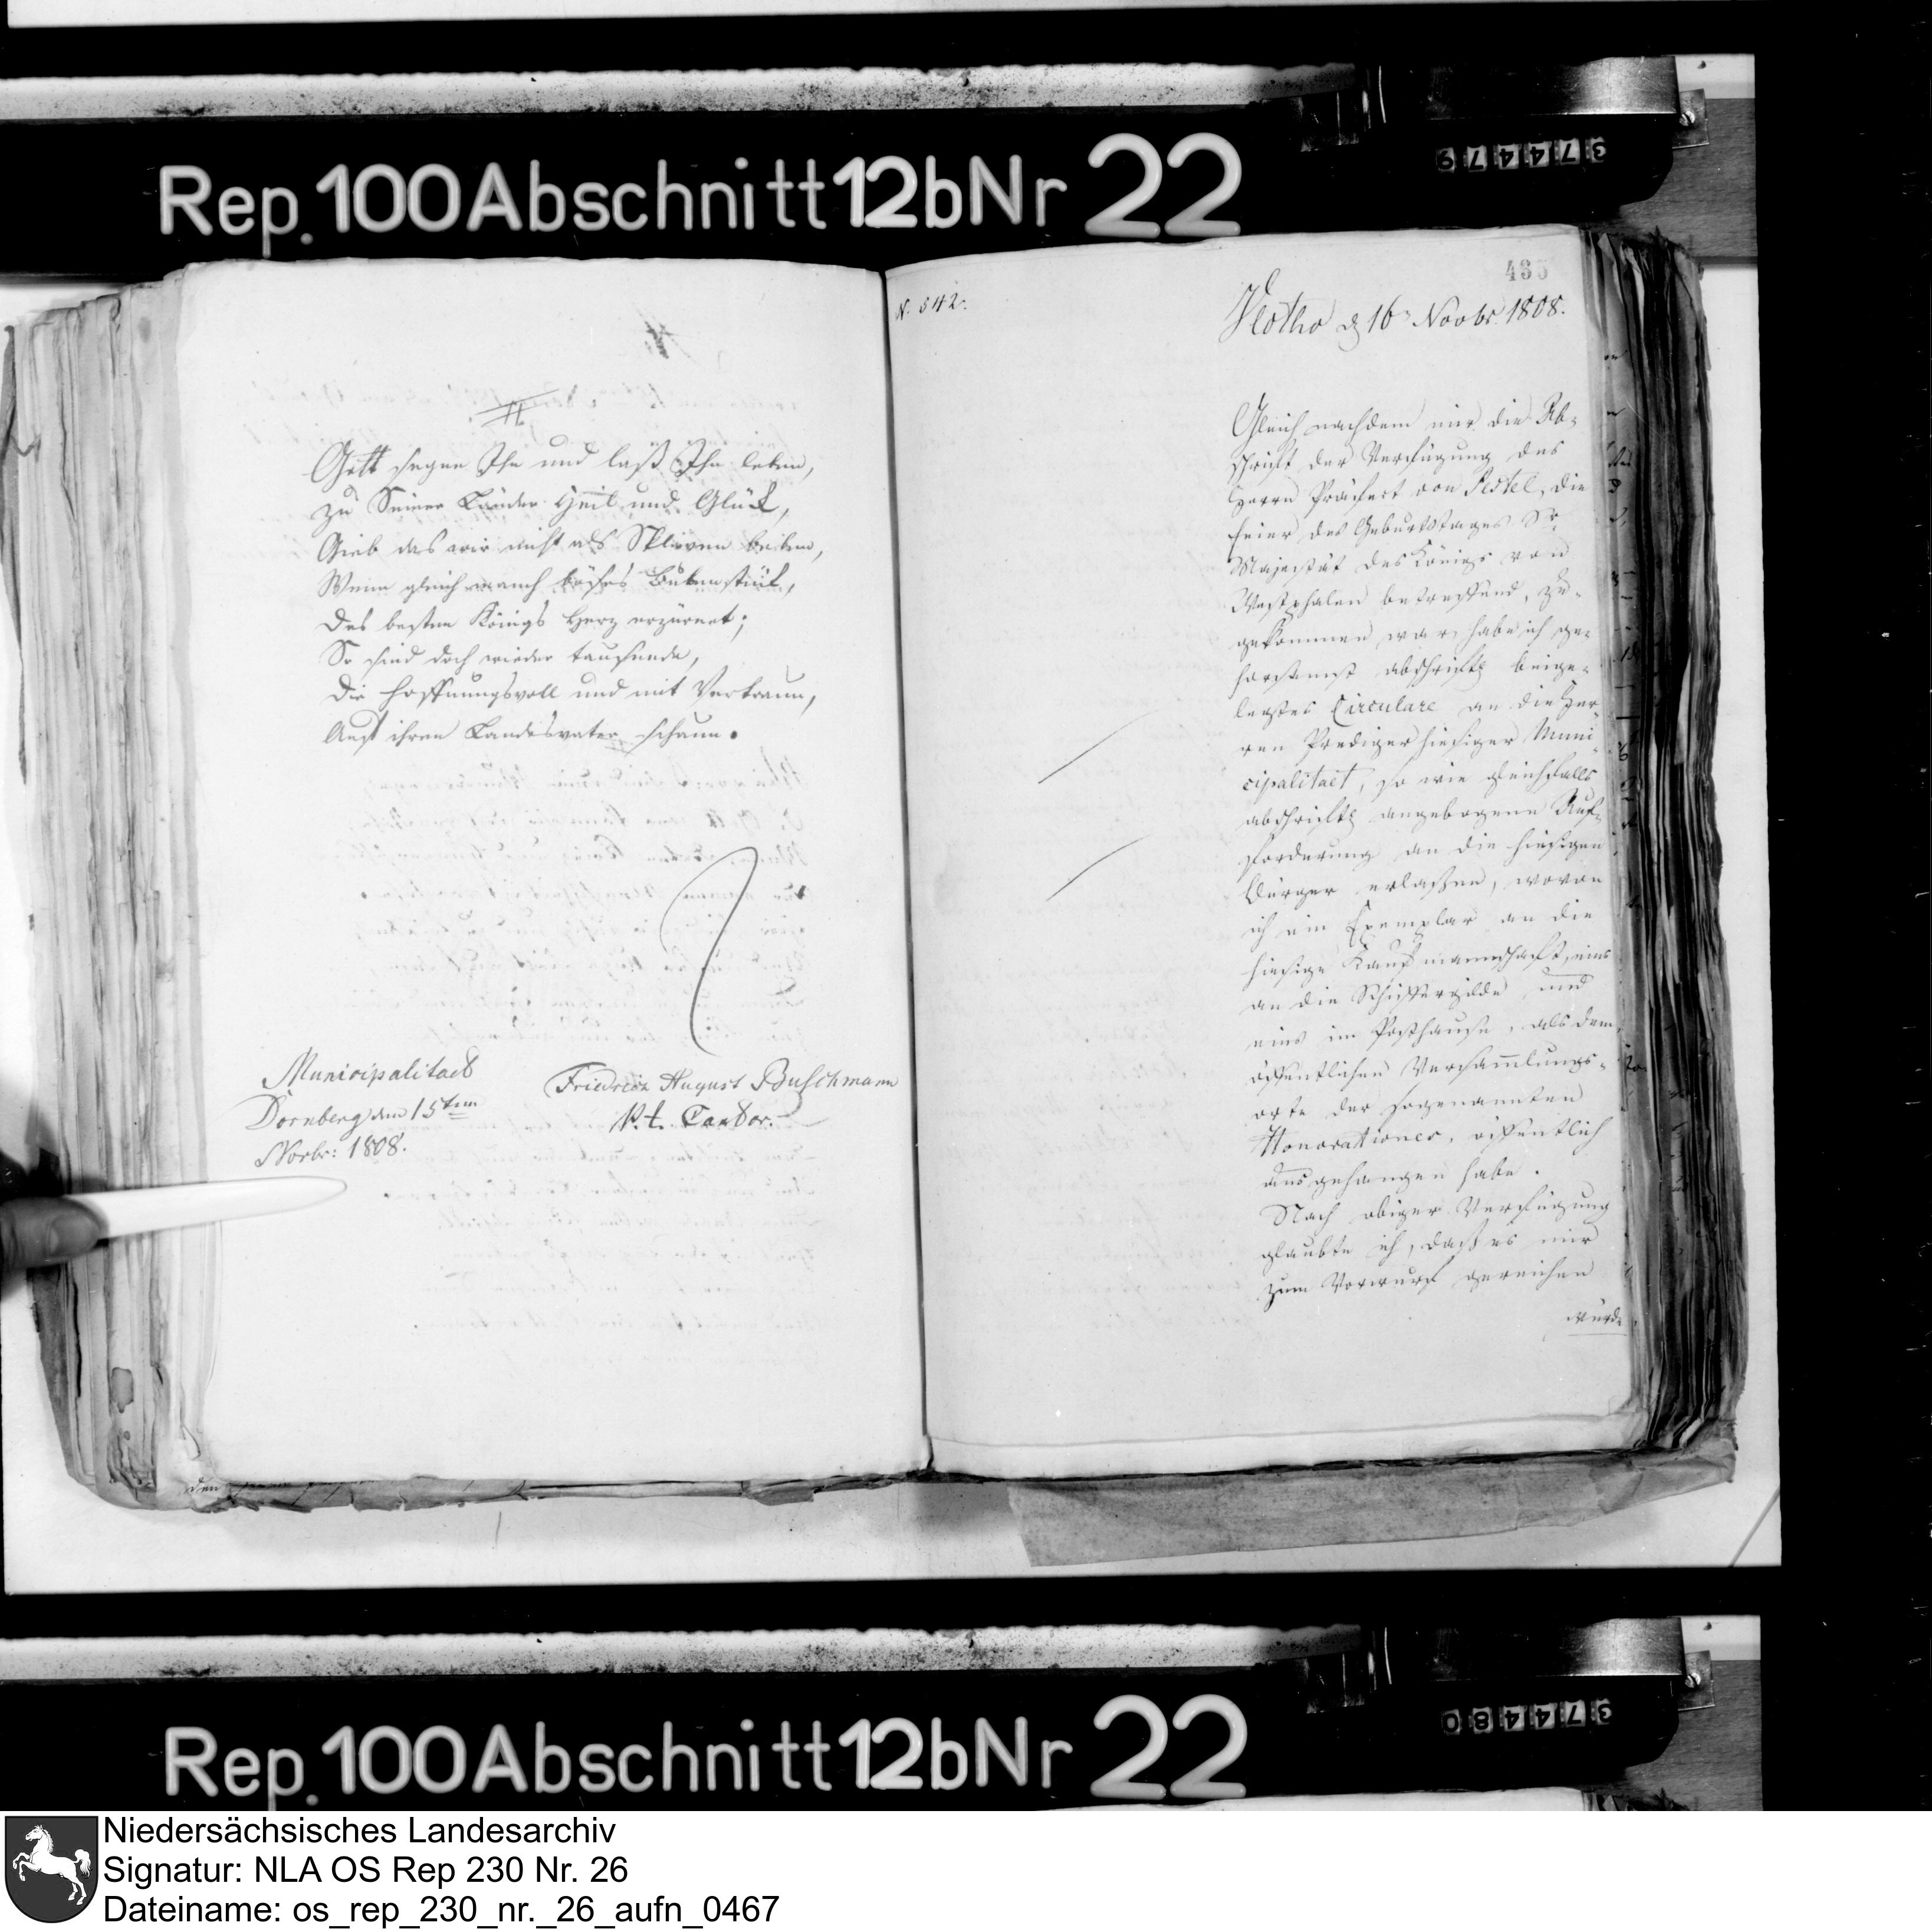 Rep. 100 Abschnitt 12b Nr 22
374479
Gott segne Ihn und laß Ihn leben,
Zu Seiner Länder Heil und Glück,
Gieb das wir nicht als Sklaven beben,
Wenn gleich manch böses Bubenstück,
Des besten Königs Herz erzürnet;
So sind doch wieder tausende,
Die hoffnungsvoll und mit Vertraun,
Auf ihren Landesvater schaun.
Municipalitaet
Dornberg den 15ten
Novbr: 1808.
Friedrich August Buschmann
p.t. Cantor.
N. 542.
435
Vlotho d 16 Novbr. 1808.
Gleich nachdem mir die Ab-
schrift der Verfügung des
Herrn Präfect von Pestel, die
Feier des Geburtstages Sr.
Majestät des Königs von
Westphalen betreffend, zu-
gekommen war, habe ich ge-
horsamst abschriftl beige-
legtes Circulare an die Her-
ren Prediger hiesiger Muni-
cipalitaet, so wie gleichfalls
abschriftl angebogene Auf-
forderung an die hiesigen
Bürger erlaßen, wovon
ich ein Exemplar an die
hiesige Kaufmannschaft, eins
an die Schiffergilde und
eins im Posthause, als dem
öffentlichen Versam̄lungs-
orte der sogenannten
Honorationes, öffentlich
ausgehangen habe.
Nach obiger Verfügung
glaubte ich, daß es mir
zum Vorwurf gereichen
würde
den
Rep. 100 Abschnitt 12b Nr 22
374480
Niedersächsisches Landesarchiv
Signatur: NLA OS Rep 230 Nr. 26
Dateiname: os_rep_230_nr._26_aufn_0467